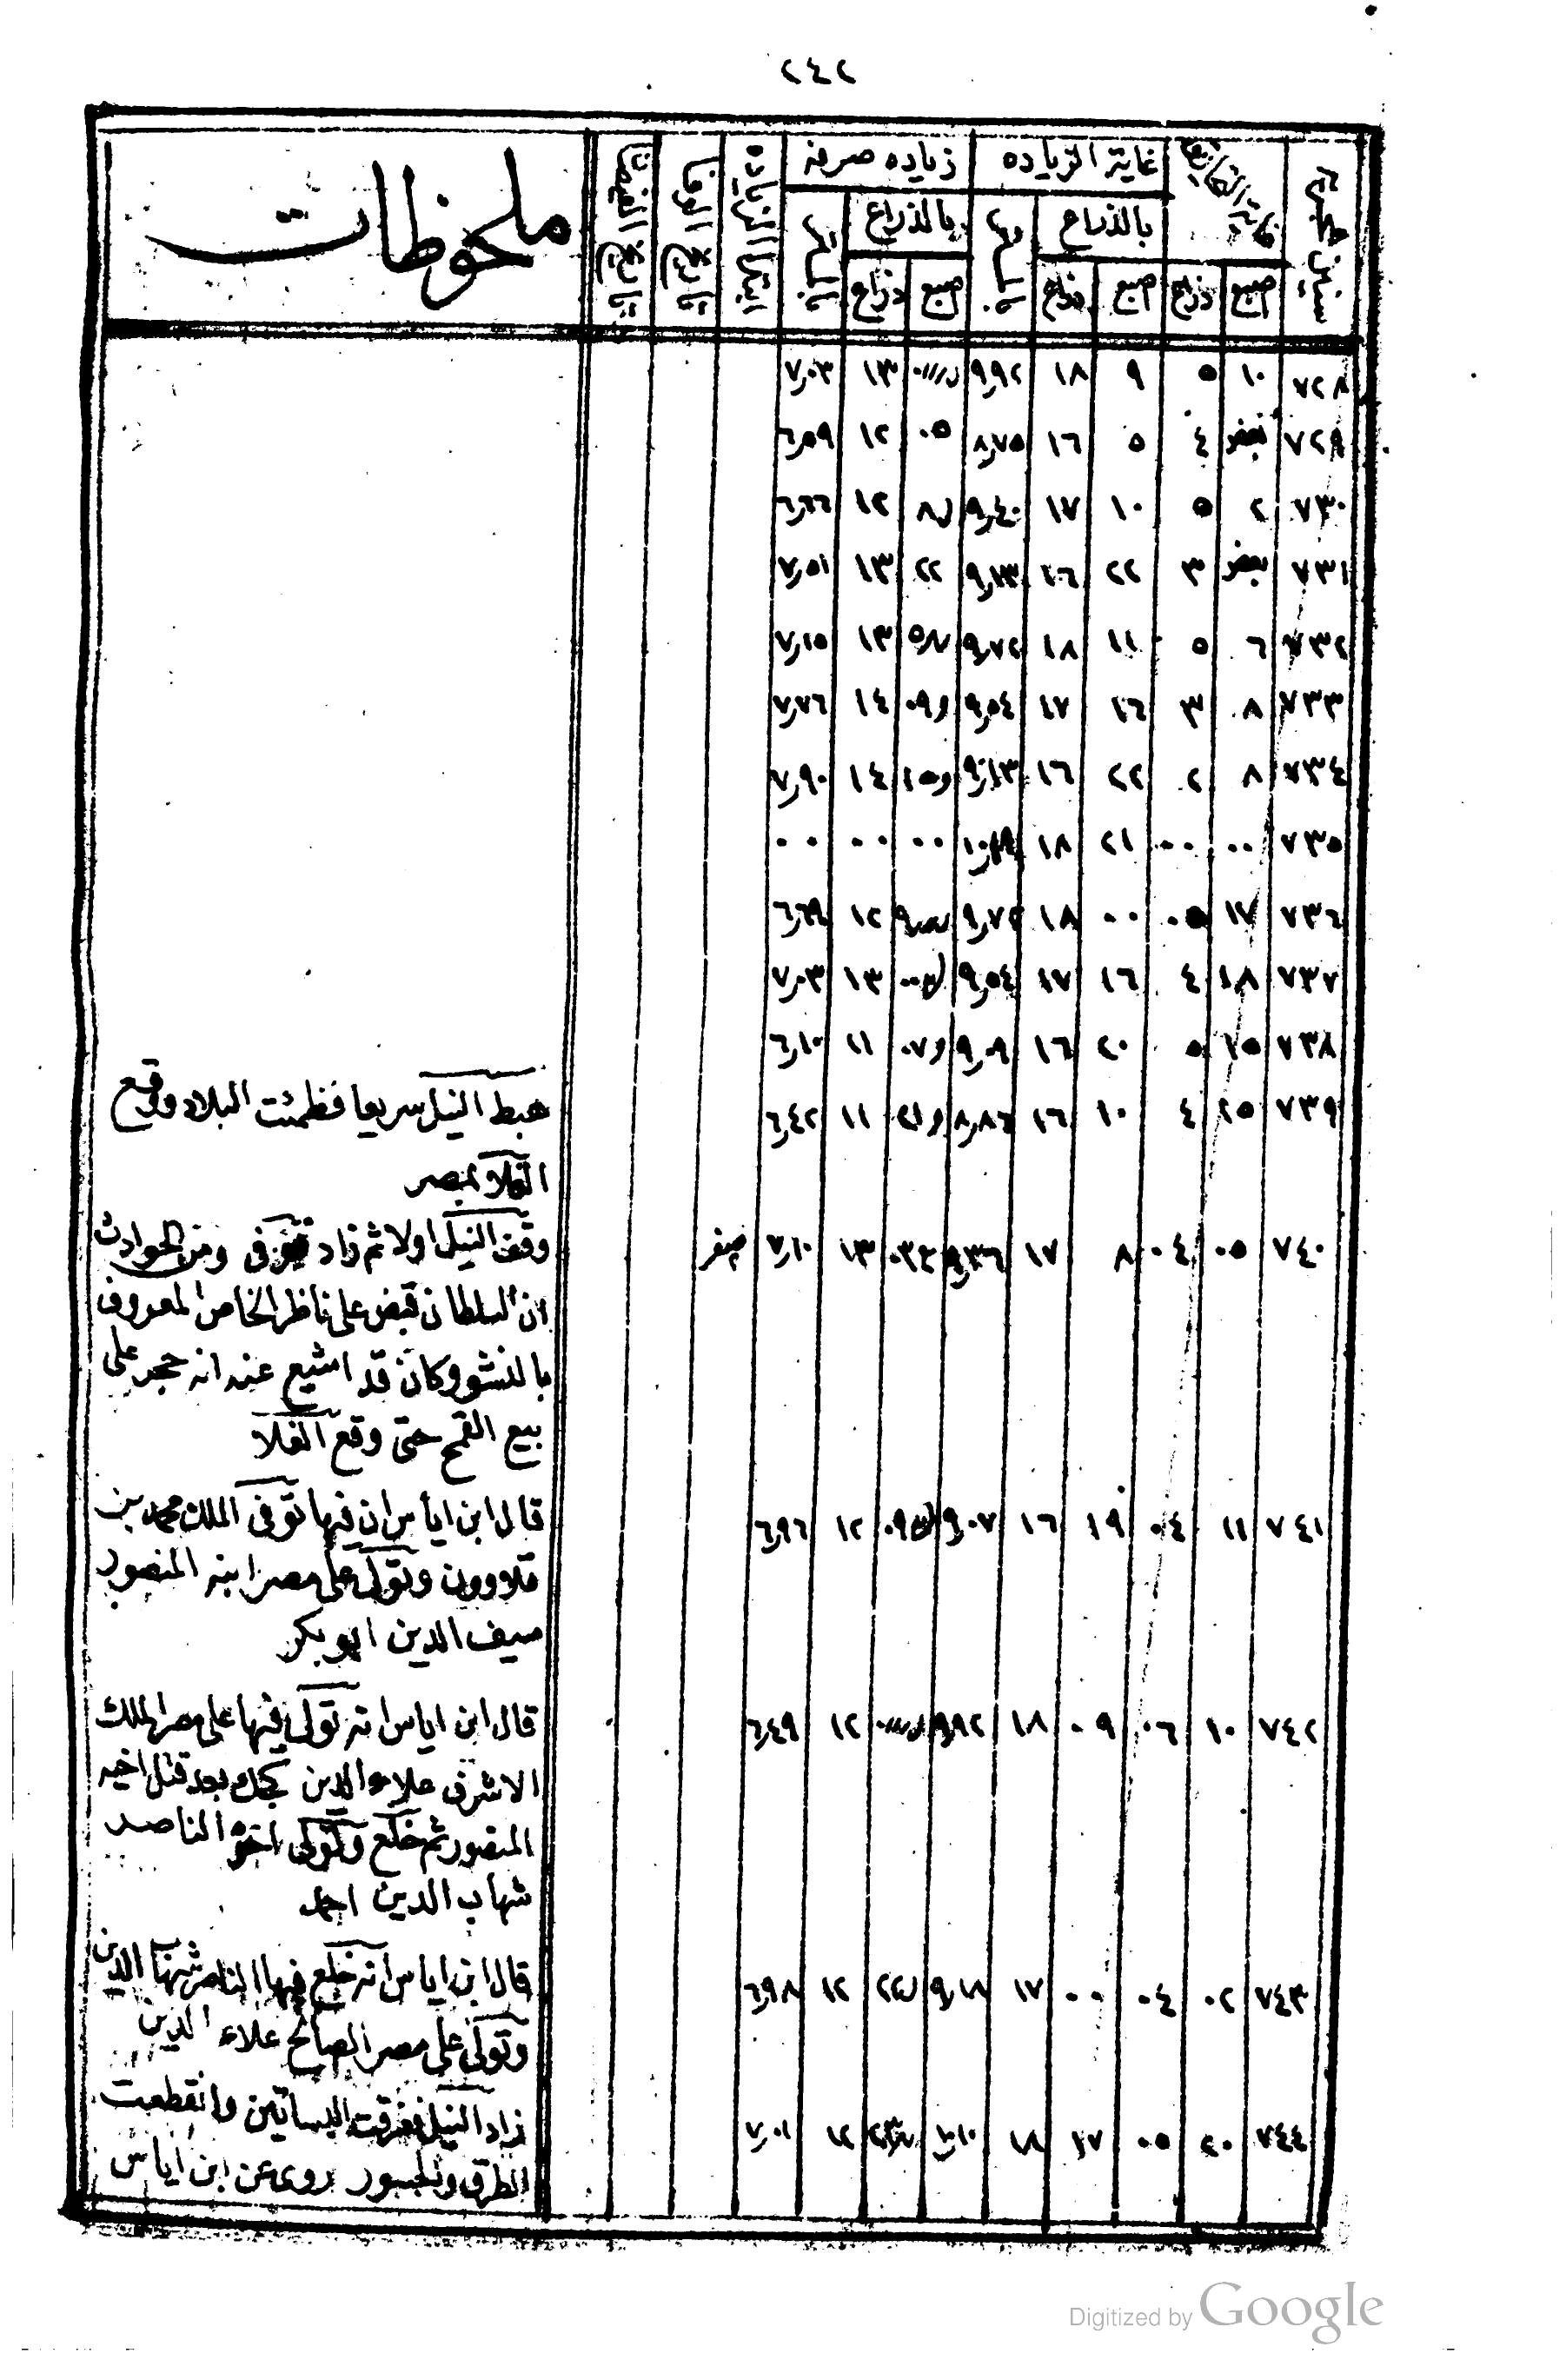 ٢٤٢
سنين هجريه
غاية التحاريق
غاية الزياده
زياده صرفه
ابتدا الزيادة
تاريخ الوفا
ملحوظات
بالذراع
بالمتر
بالذراع
بالمتر
اصبع ذراع اصبع ذراع اصبع ذراع
٧٢٨ ١٠ ٥ ٩ ١٨ ٩٫٩٢ ١٣ ٧٫٠٣
٧٢٩ بعض ٤ ٥ ١٦ ٨٫٧٥ ٠٥ ١٢ ٦٫٥٩
٧٣٠ ٢ ٥ ١٠ ١٧ ٩٫٤٠ ٨ ١٢ ٦٫٦٦
٧٣١ بعض ٣ ٢٢ ١٦ ٩٫١٣ ٢٢ ١٣ ٧٫٥١
٧٣٢ ٦ ٥ ١١ ١٨ ٩٫٧٢ ٥ ١٣ ٧٫١٥
٧٣٣ ٨ ٣ ١٦ ١٧ ٩٫٥٤ ٠٩ ١٤ ٧٫٧٦
٧٣٤ ٨ ٢ ٢٢ ١٦ ٩٫١٣ ١٥ ١٤ ٧٫٩٠
٧٣٥ ٠٠ ٠٠ ٢١ ١٨ ٠٠ ٠٠ ٠٠
٧٣٦ ١٧ ٠٥ ٠٠ ١٨ ٩٫٧٢ ٩ ١٢ ٦٫٦٩
٧٣٧ ١٨ ٤ ١٦ ١٧ ٩٫٥٤ ١٣ ٧٫٠٣
٧٣٨ ١٥ ٥ ٢٠ ١٦ ٩٫٠٩ ٠٧ ١١ ٦٫١٠
٧٣٩ ١٥ ٤ ١٠ ١٦ ٨٫٨٦ ٢١ ١١ ٦٫٤٢ هبط النيل سريعا فظمئت البلاد ووقع
الغلا بمصر
٧٤٠ ٠٥ ٠٤ ٨ ١٧ ٩٫٣٦ ١٣ ٧٫١٠ صفر وقف النيل اولا ثم زاد فوفى ومن الحوادث
ان السلطان قبض على ناظر الخاص المعروف
بالنشو وكان قد اشيع عنه انه حجر على
بيع القمح حتى وقع الغلا
٧٤١ ١١ ٠٤ ١٩ ١٦ ٩٫٠٧ ١٢ ٦٫٩٦ قال ابن اياس ان فيها توفى الملك محمد بن
قلاوون وتولى على مصر ابنه المنصور
سيف الدين ابو بكر
٧٤٢ ١٠ ٠٦ ٠٩ ١٨ ٩٫٩٢ ١٢ ٦٫٤٩ قال ابن اياس انه تولى فيها على مصر الملك
الاشرف علاء الدين كجك بعد قتل اخيه
المنصور ثم خلع وتولى اخوه الناصر
شهاب الدين احمد
٧٤٣ ٠٢ ٠٤ ٠٠ ١٧ ٩٫١٨ ٢٢ ١٢ ٦٫٩٨ قال ابن اياس انه خلع فيها الناصر شهاب الدين
وتولى على مصر الصالح علاء الدين
٧٤٤ ٢٠ ٠٥ ١٧ ١٨ ١٠٫١٠ ١٢ ٧٫٠١ زاد النيل فغرقت البساتين وانقطعت
الطرق والجسور روى عن ابن اياس
Digitized by Google